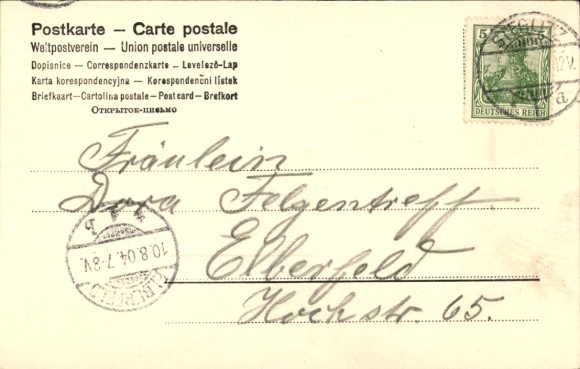 Postkarte – Carte postale
Weltpostverein – Union postale universelle
Dopisnice – Correspondenzkarte – Levelező-Lap
Karta korespondencyjna – Korespondenční lístek
Briefkaart – Cartolina postale – Post card – Brefkort
Открытое-письмо
5
DEUTSCHES REICH
a
Fräulein
Dora Felgentreff.
Elberfeld
Hochstr. 65.
10.8.04.7-8V.